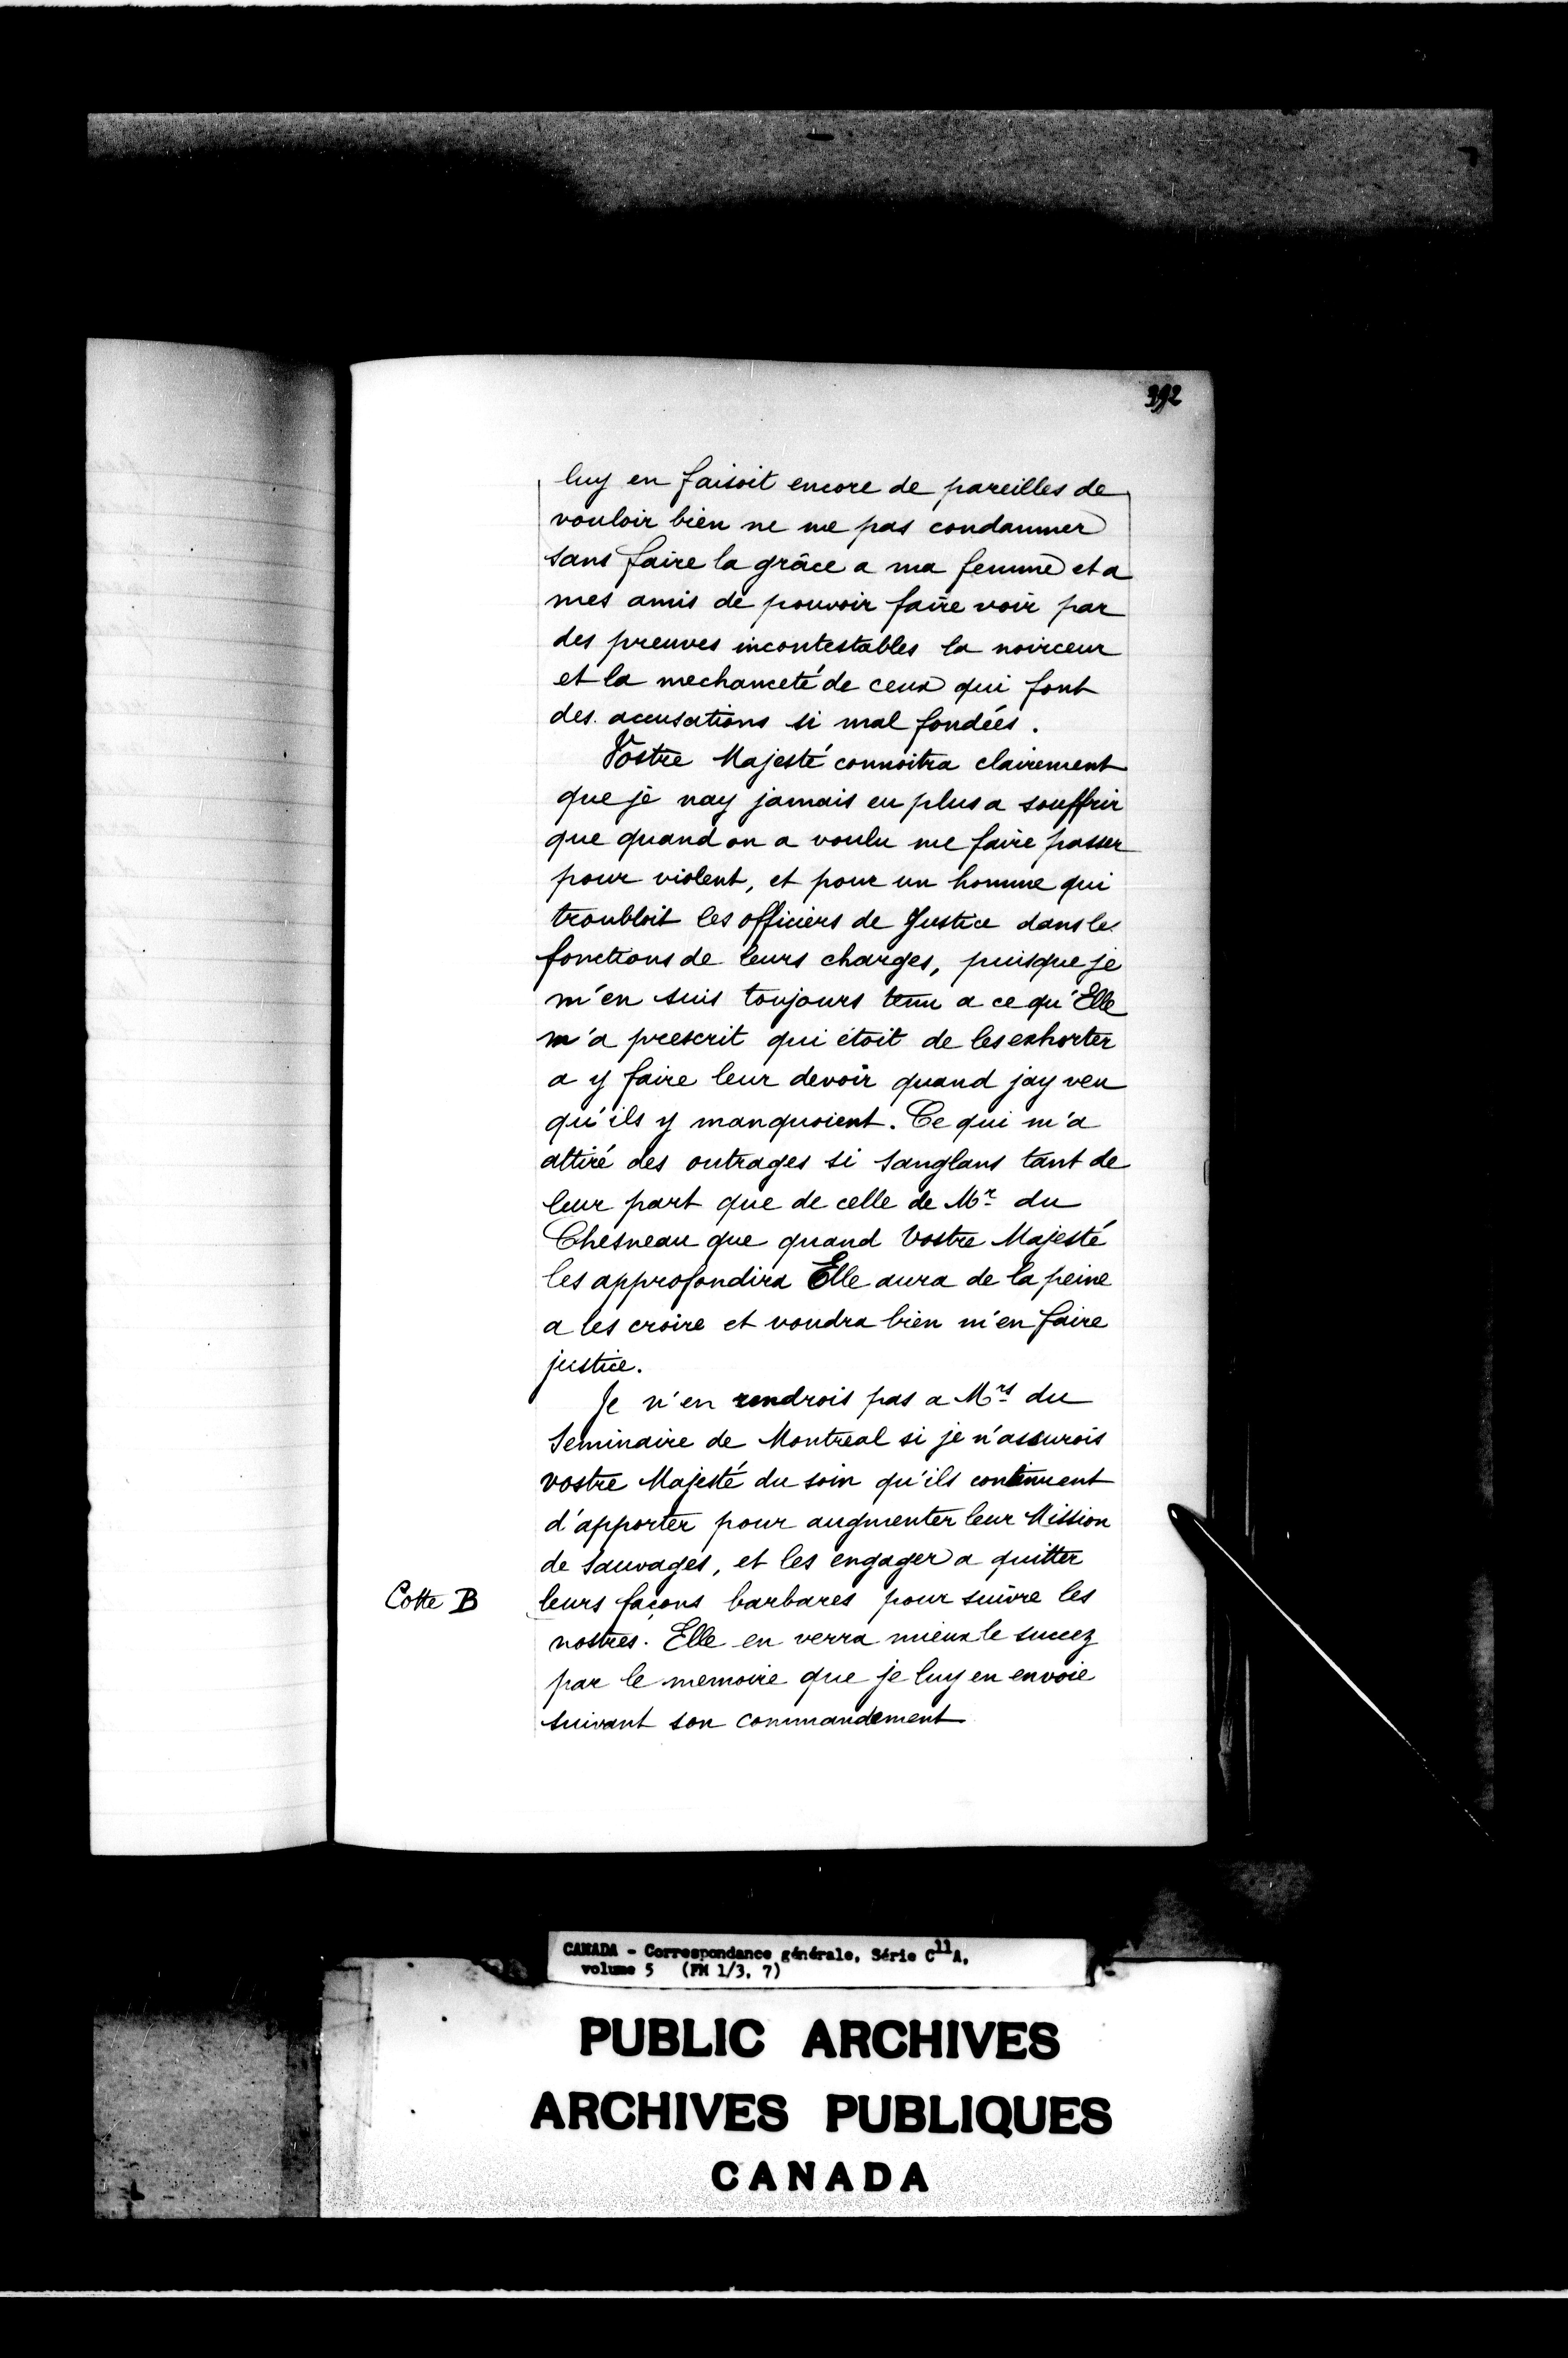 392
luy en faisoit encore de pareilles de
vouloir bien ne me pas condamner
sans faire la grâce a ma femme et a
mes amis de pouvoir faire voir par
des preuves incontestables la noirceur
et la mechanceté de ceux qui font
des accusations si mal fondées.
Vostre Majesté connoitra clairement
que je nay jamais eu plus a souffrir
que quand on a voulu me faire passer
pour violent, et pour un homme qui
troubloit les officiers de Justice dans les
fonctions de leurs charges, puisque je
m'en suis toujours tenu a ce qu'Elle
m'a prescrit qui étoit de les exhorter
a y faire leur devoir quand jay veu
qu'ils y manquoient. Ce qui m'a
attiré des outrages si sanglans tant de
leur part que de celle de Mr du
Chesneau que quand Vostre Majesté
les approfondira Elle aura de la peine
a les croire et voudra bien m'en faire
justice.
Je n'en rendrois pas a Mrs du
Seminaire de Montreal si je n'assurois
vostre Majesté du soin qu'ils continuent
d'apporter pour augmenter leur Mission
de Sauvages, et les engager a quitter
Cotte B leurs façons barbares pour suivre les
nostres. Elle en verra mieux le succez
par le memoire que je luy en envoie
suivant son commandement
CANADA - Correspondance générale, Série C11A,
volume 5 (FM 1/3, 7)
PUBLIC ARCHIVES
ARCHIVES PUBLIQUES
CANADA